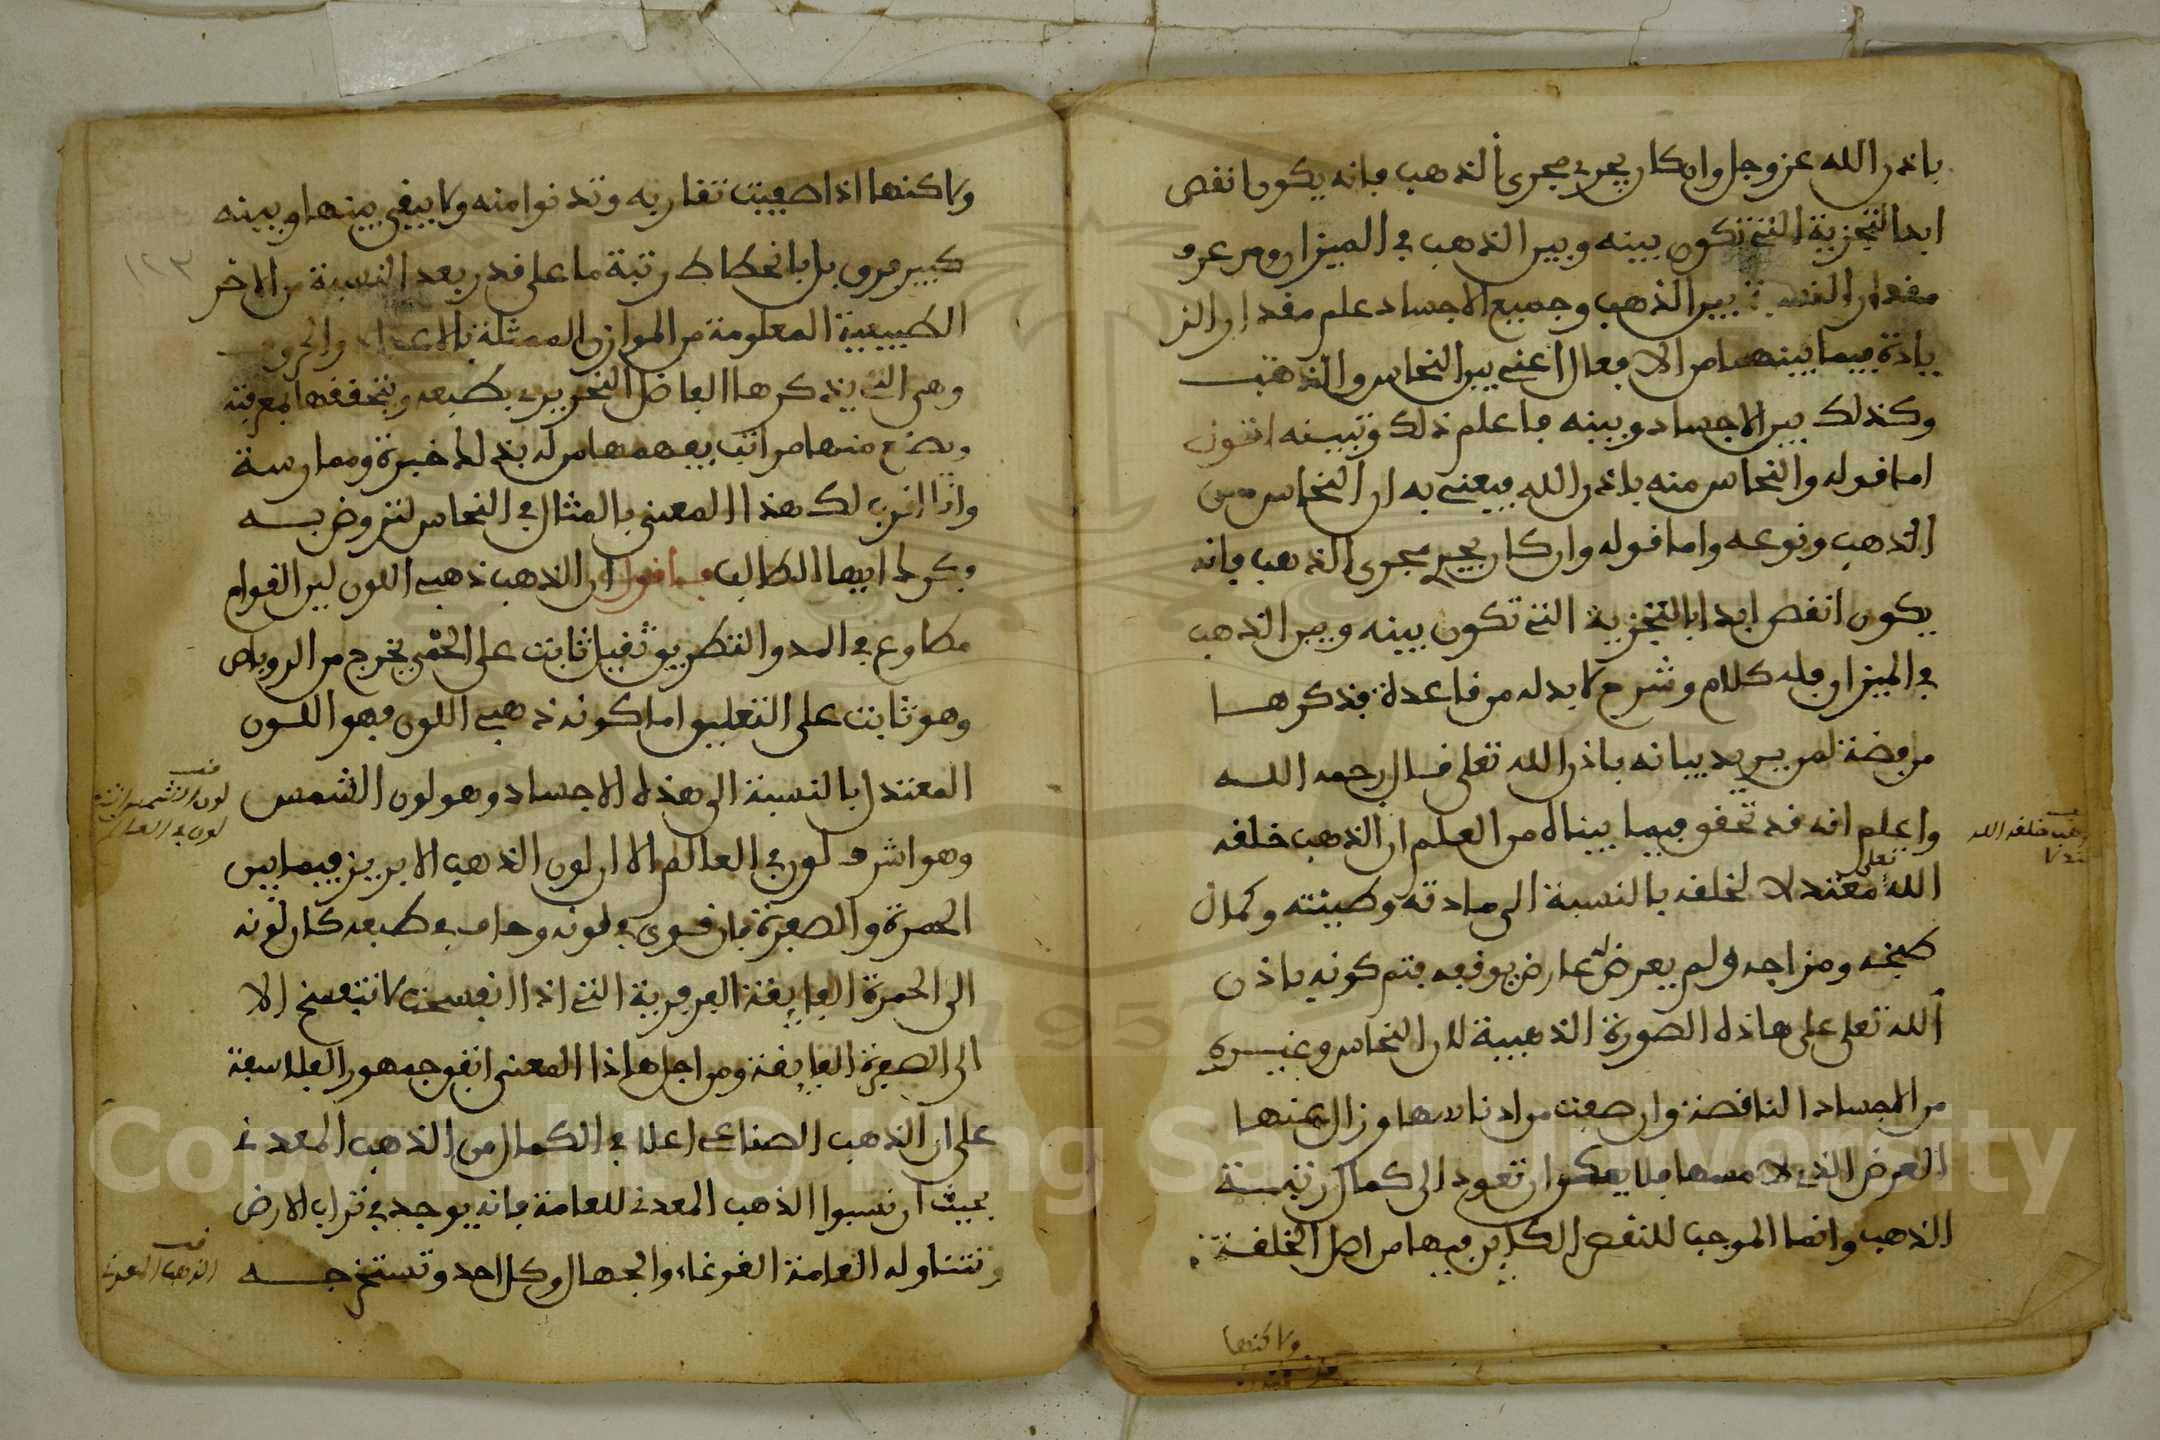 باذن الله عز وجل وان كان يجرى مجرى الذهب فانه يكون انقص
ابدا بالتجزية التي تكون بينه وبين الذهب في الميزان ومن عرف
مقدار النسبة بين الذهب وجميع الاجساد علم مقدار الز
يادة فيما بينهما من الافعال اعني بين النحاس والذهب
وكذلك بين الاجساد وبينه فاعلم ذلك وتبينه انتهى
اما قوله والنحاس منه باذن الله فيعني به ان النحاس من
الذهب ونوعه واما قوله وان كان يجرى مجرى الذهب فانه
يكون انقص ابدا بالتجزية التي تكون بينه وبين الذهب
في الميزان فله كلام وشرح لا بد له من قاعدة فذكرها
مرفضة لمن يريد بيانه باذن الله تعلى قال رحمه الله
واعلم انه قد تحقق فيما بيناه من العلم ان الذهب خلقه
الله تعلى معتدلا لخلقه بالنسبة الى مادته وطينته وكمال
طبخه ومزاجه ولم يعرض له عارض يوقفه فتم كونه باذن
الله تعلى على هاذه الصورة الذهبية لان النحاس وغيره
من الاجساد الناقصة وان صفت من ادناسها وزال عنها
العرض الذي لامسها فلا يمكن ان تعود الى كمال رتبة
الذهب وانما الموجب للنقص الكاين فيها من اصل الخلقة
ولاكنها
ذهب خلقه الله
ولاكنها اذا صفيت تقاربه وتدنوا منه ولا يبقى بينها وبينه
كبير فرق بل بانحطاط رتبة ما على قدر بعد النسبة من الاخر
الطبيعية المعلومة من الموازن الممثلة بالاعداد والحروف
وهي التي يذكرها الفاضل النحرير بطبعه ويتحققها بمعرفته
ويضع منها مراتب يفهمها من له بذلك خبرة وممارسة
وانا اقرب لك هذا المعنى بالمثال في النحاس لتروض به
فكرك ايها الطالب فاقول ان الذهب ذهبي اللون لين القوام
مطاوع في المد والتطريق ثقيل ثابت على الحمى يخرج من الروباص
وهو ثابت على التعليق اما كونه ذهبي اللون فهو اللون
المعتدل بالنسبة الى هذه الاجساد وهو لون الشمس
وهو اشرف لون في العالم الا ان لون الذهب الابريز فيما بين
الحمرة والصفرة فان قوى في لونه وصاف في طبعه كان لونه
الى الحمرة الفايقة الفرفرية التي اذا انفسخت لا تنفسخ الا
الى الصفرة الفايقة ومن اجل هاذا المعنى اتفق جمهور الفلاسفة
على ان الذهب الصناعي اعلا في الكمال من الذهب المعدني
بحيث ان نسبوا الذهب المعدني للعامة فانه يوجد في تراب الارض
وتتناوله العامة الغوغاء والجهال وكل احد وتستخرجه
قف
لون الشمس اشرف
لون في العالم
قف
الذهب المعدني
١٢٣
Copyright © King Saud University
1957